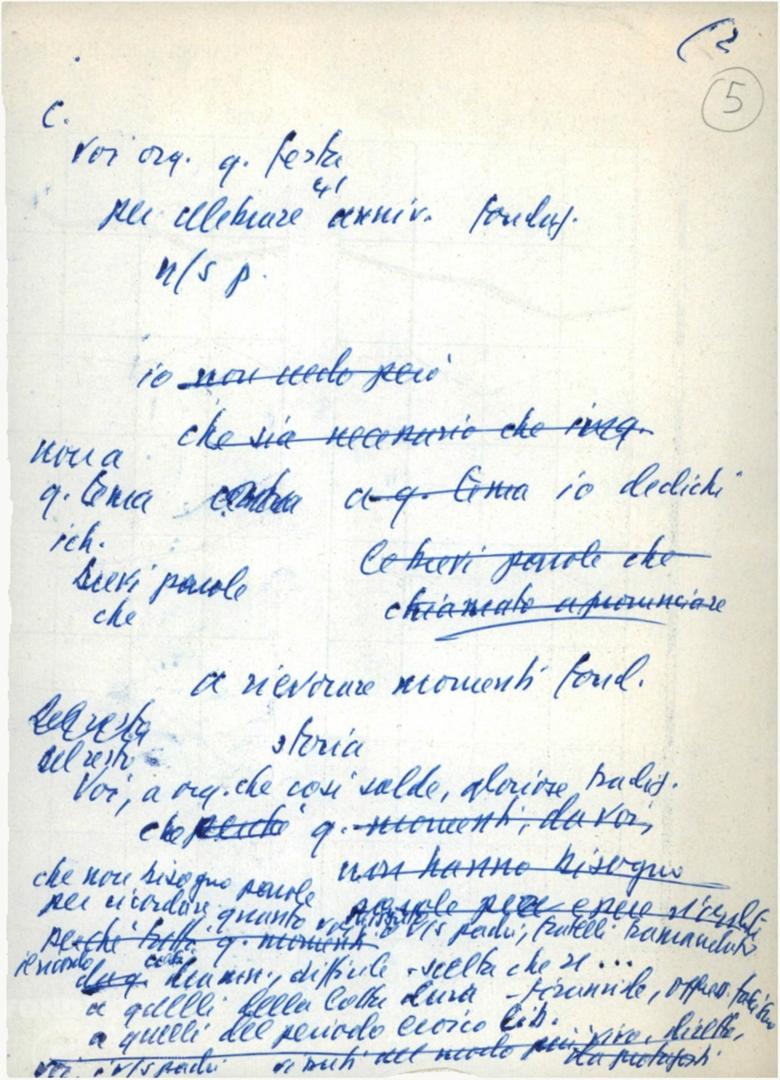 (2
5
C.
Voi org. q. festa
per celebrare 41 anniv. fondaz.
n/s p.
io non credo però
che sia necessario che in q.
non a
q. tema a q. tema io dedichi
ich.
brevi parole le brevi parole che
che chiamato a pronunciare
a rievocare momenti fond.
storia
Del resto
del resto
Voi, a org. che così salde, gloriose tradiz.
che perché q. momenti, da voi,
non hanno bisogno
che non bisogno parole
per ricordare quanto v/s padri, fratelli tramandati
parole per essere
perché tratta q. momenti
il ricordo dramm., difficile - scelta che si ...
a quelli della lotta dura - tirannide, oppress.
a quelli del periodo eroico Lib.
voi, i v/s padri vissuti nel modo più vivo, diretto,
da protagonisti